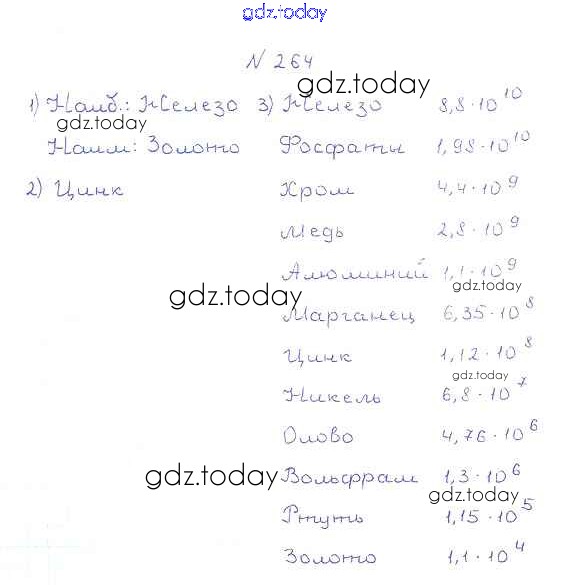 gdz.today
№ 264
gdz.today
1) Наиб.: Железо 3) Железо 8,8·10^10
gdz.today
Наим: Золото Фосфаты 1,98·10^10
2) Цинк Хром 4,4·10^9
Медь 2,8·10^9
Алюминий 1,1·10^9
gdz.today
gdz.today
Марганец 6,35·10^8
Цинк 1,12·10^8
gdz.today
Никель 6,8·10^7
Олово 4,76·10^6
gdz.today
Вольфрам 1,3·10^6
gdz.today
Ртуть 1,15·10^5
Золото 1,1·10^4